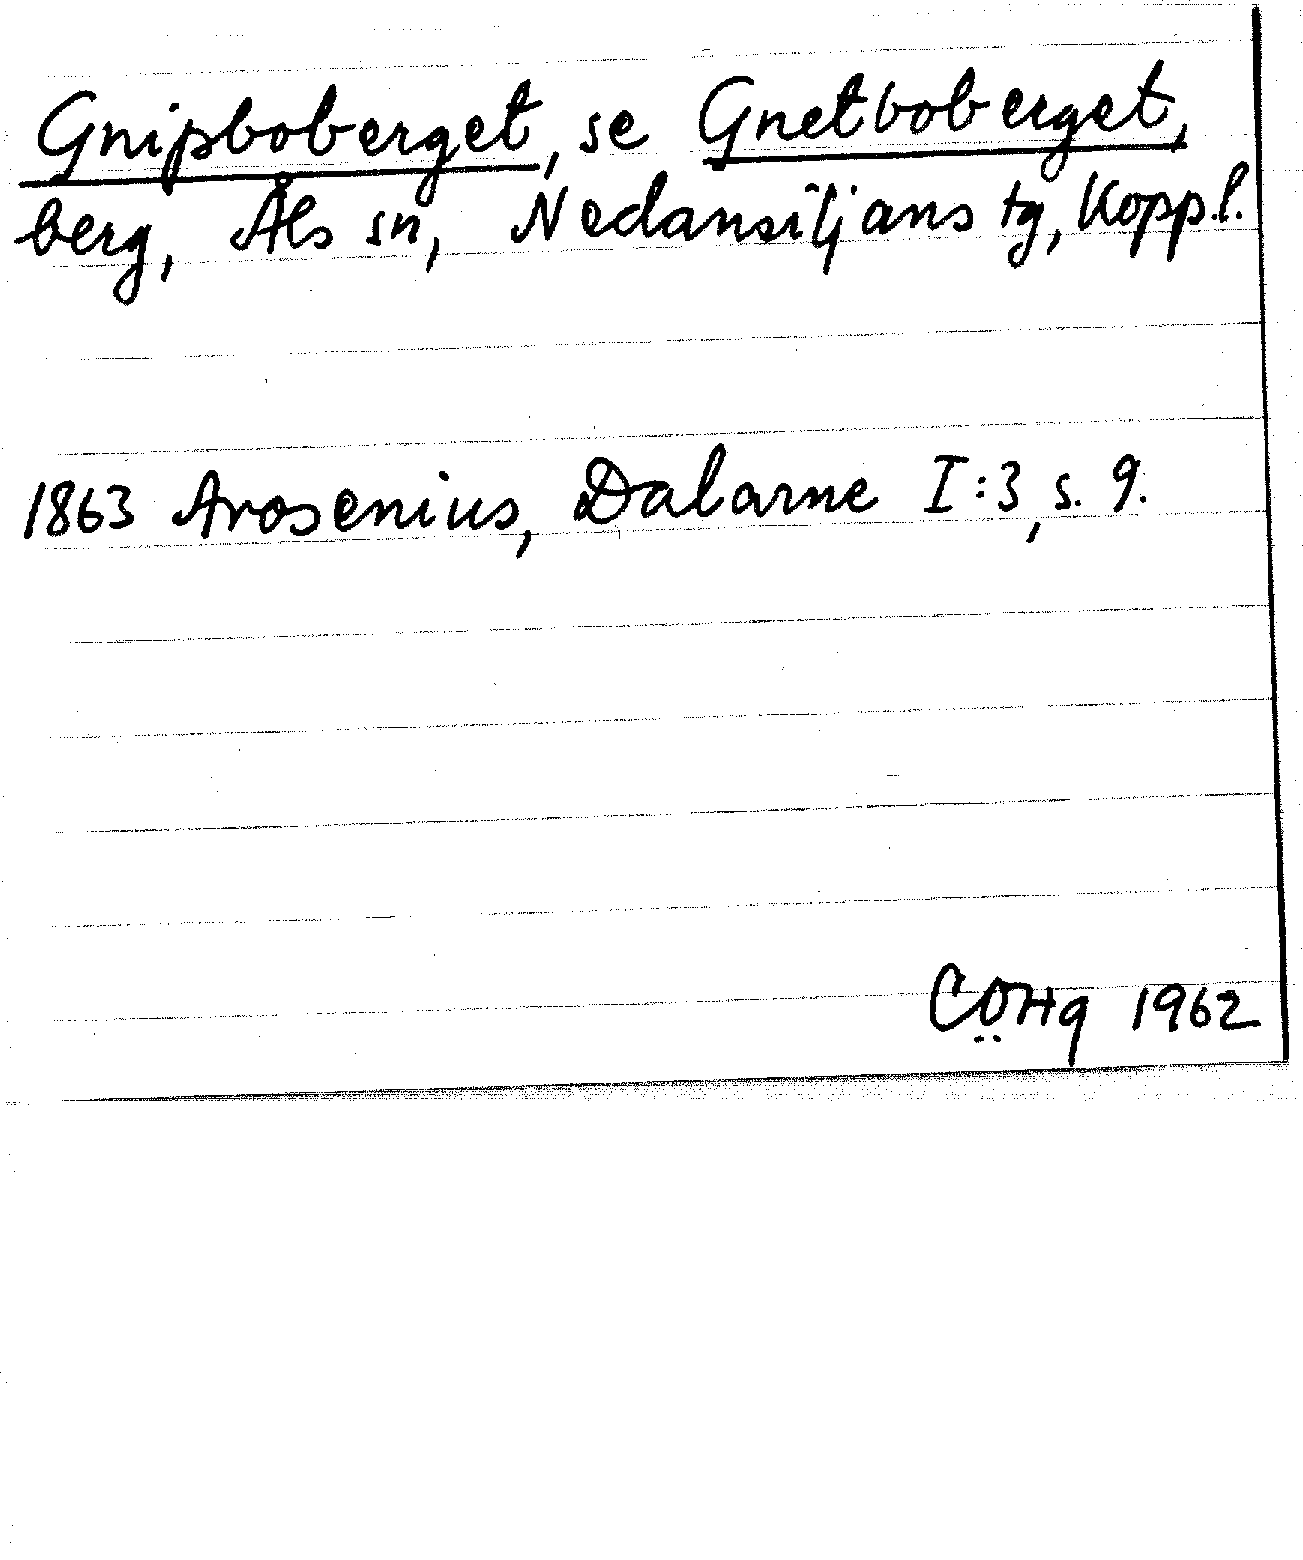 Gnipboberget, se Gnetboberget,
berg, Åls sn, Nedansiljans tg, Kopp.l.
1863 Arosenius, Dalarne I:3, s. 9.
CÖHq 1962